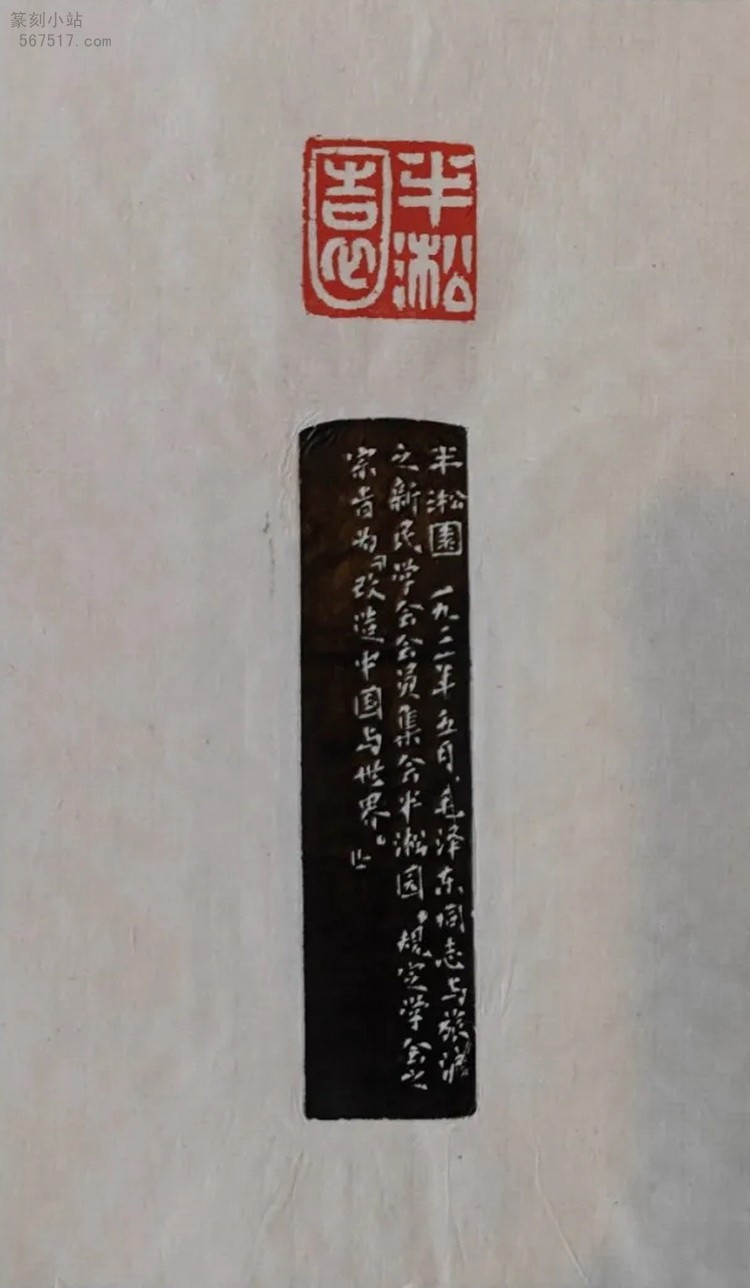 篆刻小站
567517.com
半淞園
半淞園 一九二〇年五月,毛泽东同志与旅沪
之新民学会会员集会半淞园,规定学会之
宗旨为“改造中国与世界”。